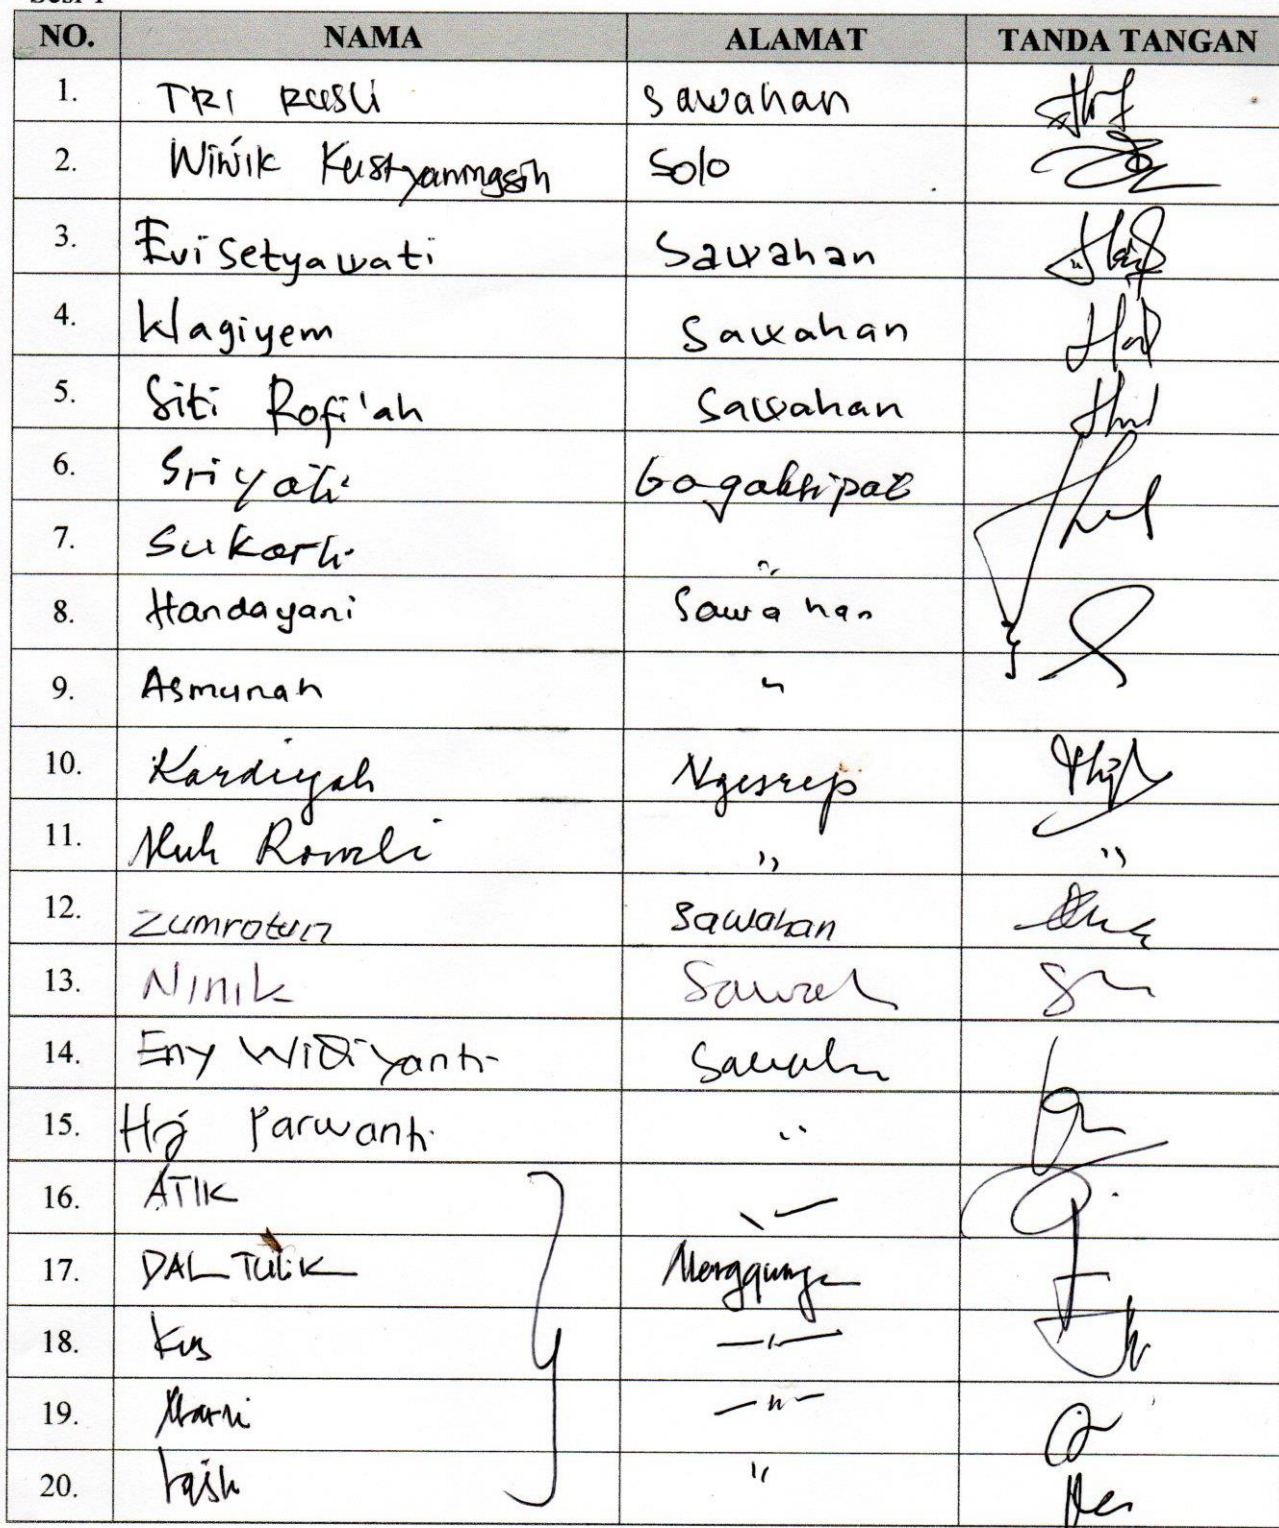 NO. NAMA ALAMAT TANDA TANGAN
1. TRI RUSLI Sawahan
2. Winik Kustyaningsih Solo
3. Evi Setyawati Sawahan
4. Wagiyem Sawahan
5. Siti Rofi'ah Sawahan
6. Sriyati Gagaksipat
7. Sukarti "
8. Handayani Sawahan
9. Asmunah "
10. Kardiyah Ngesrep
11. Muh Romeli " "
12. Zumrotun Sawahan
13. Ninik
14. Eny Widiyanti
15. Hj Parwanti "
16. ATIK
17. DAL TULIK
18. Kus —"—
19. —"—
20. "